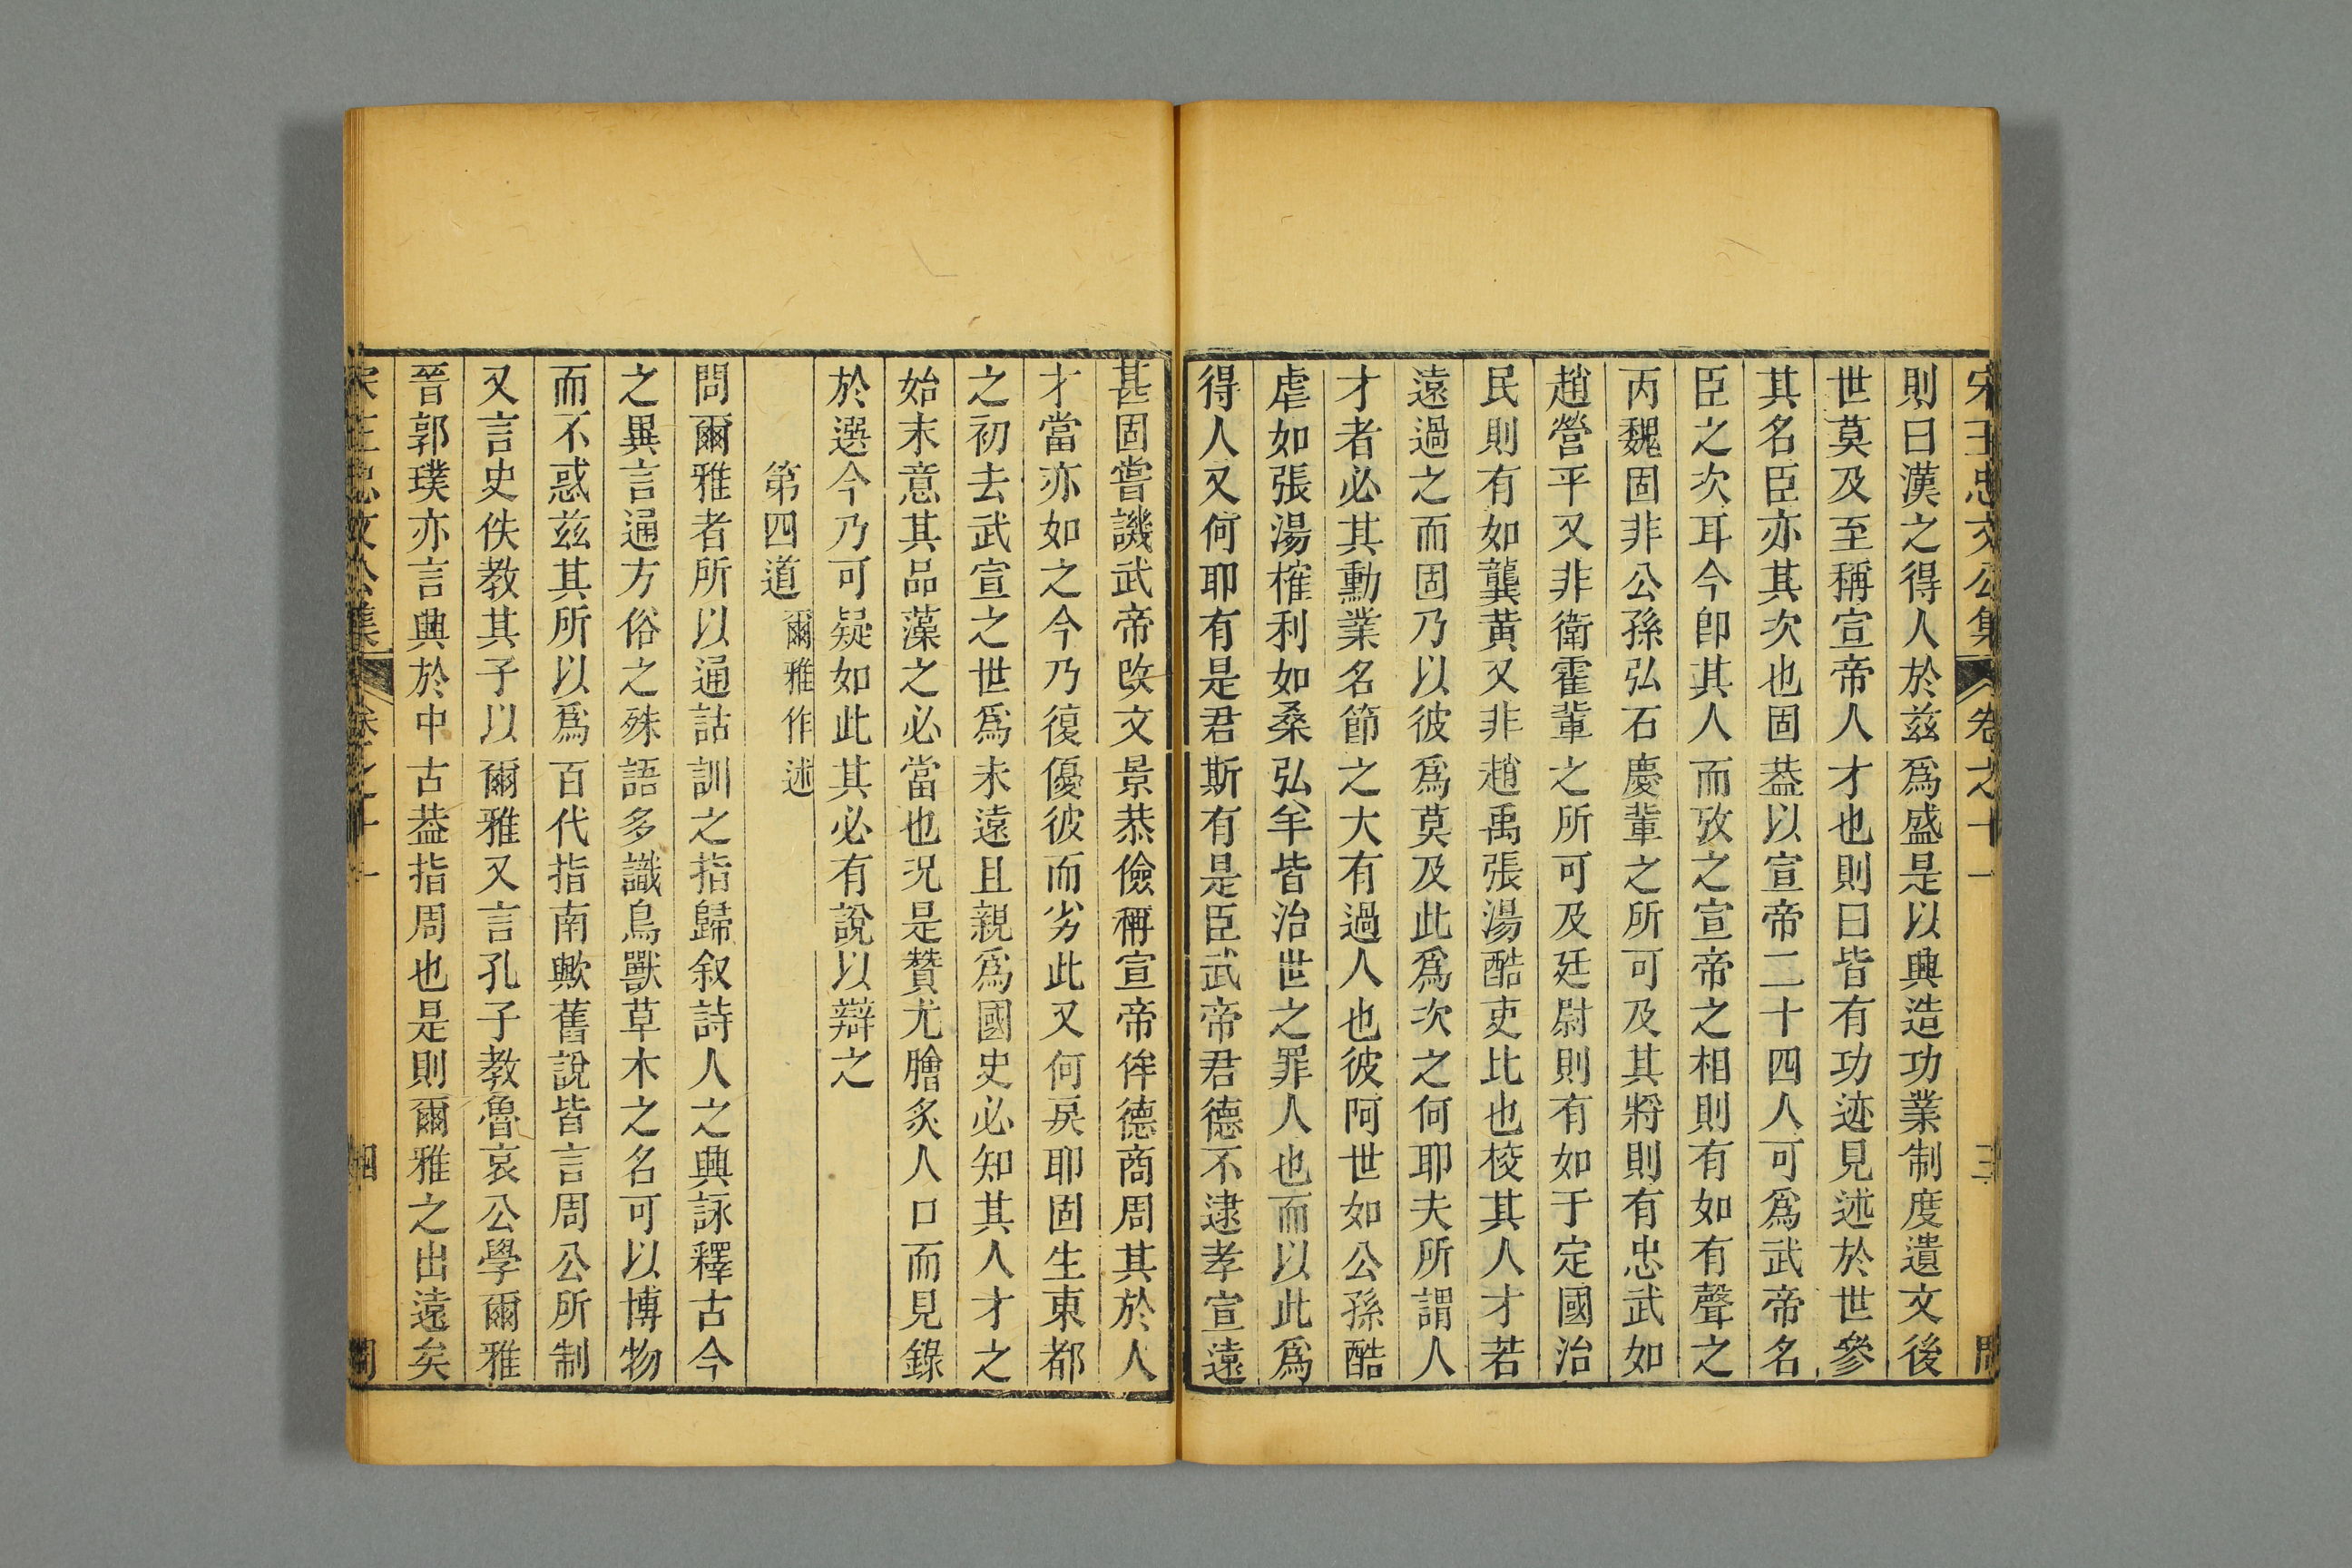 宋王忠文公集 卷之十一 三
則曰漢之得人於兹爲盛是以興造功業制度遺文後
世莫及至稱宣帝人才也則曰皆有功迹見述於世參
其名臣亦其次也固葢以宣帝二十四人可爲武帝名
臣之次耳今卽其人而攷之宣帝之相則有如有聲之
丙魏固非公孫弘石慶輩之所可及其將則有忠武如
趙營平又非衛霍輩之所可及廷尉則有如于定國治
民則有如龔黃又非趙禹張湯酷吏比也校其人才若
遠過之而固乃以彼爲莫及此爲次之何耶夫所謂人
才者必其勳業名節之大有過人也彼阿世如公孫酷
虐如張湯榷利如桑弘羊皆治世之罪人也而以此爲
得人又何耶有是君斯有是臣武帝君德不逮孝宣遠
甚固嘗譏武帝攺文景恭儉稱宣帝侔德商周其於人
才當亦如之今乃復優彼而劣此又何戾耶固生東都
之初去武宣之世爲未遠且親爲國史必知其人才之
始末意其品藻之必當也况是贊尤膾炙人口而見錄
於選今乃可疑如此其必有說以辯之
第四道 爾雅作述
問爾雅者所以通詁訓之指歸叙詩人之興詠釋古今
之異言通方俗之殊語多識鳥獸草木之名可以博物
而不惑兹其所以爲百代指南歟舊說皆言周公所制
又言史佚教其子以爾雅又言孔子教魯哀公學爾雅
晉郭璞亦言興於中古葢指周也是則爾雅之出遠矣
宋王忠文公集 卷之十一 四